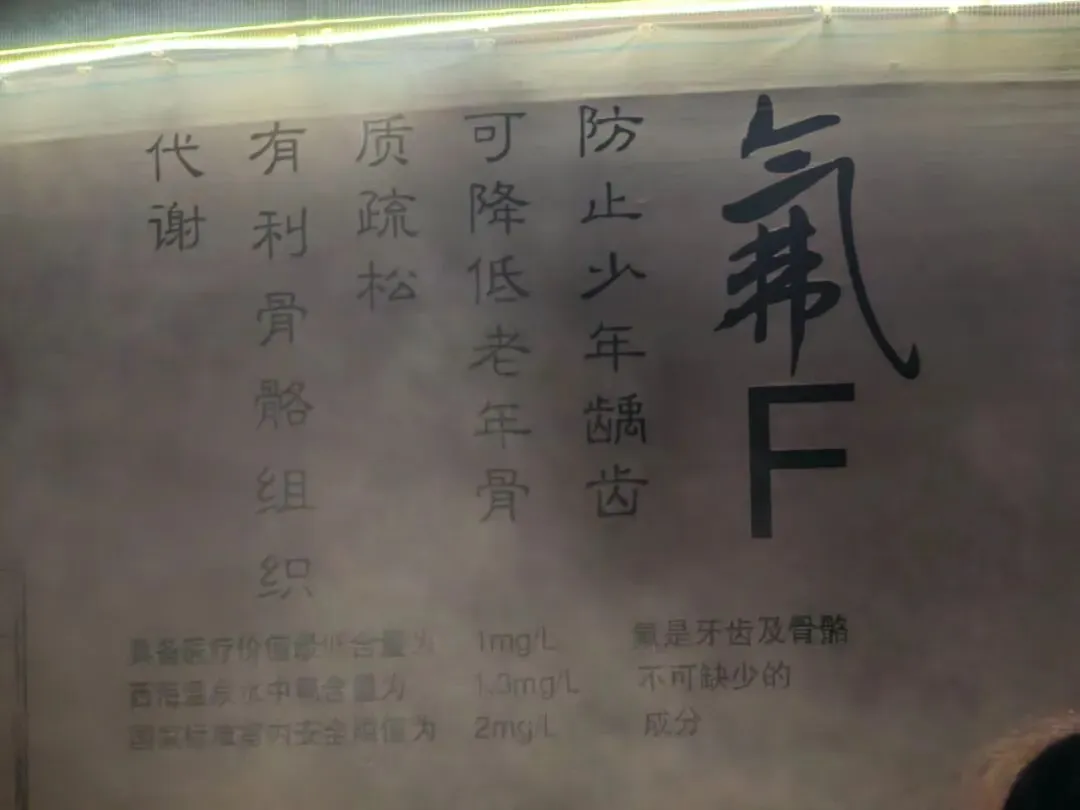 氟
F
防止少年龋齿
可降低老年骨
质疏松
有利骨骼组织
代谢
氟是牙齿及骨骼
不可缺少的
成分
具备医疗价值最低含量为 1mg/L
西海温泉水中氟含量为 1.3mg/L
国家标准室内安全阈值为 2mg/L